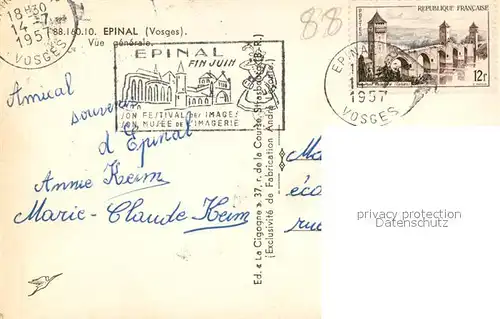 18H30
14-7
1957
VOSGES
88.160.10. EPINAL (Vosges).
Vue générale.
EPINAL
FIN JUIN
SON FESTIVAL DES IMAGES
SON MUSÉE DE L'IMAGERIE
88
EPINAL
1957
VOSGES
RÉPUBLIQUE FRANÇAISE
POSTES
12F
Amical
souvenir
d'Epinal
Annie Keim
Marie-Claude Keim
Ed. « La Cigogne », 37, r. de la Course, Strasbourg (B.-R.)
(Exclusivité de Fabrication André
éco
rue
privacy protection
Datenschutz